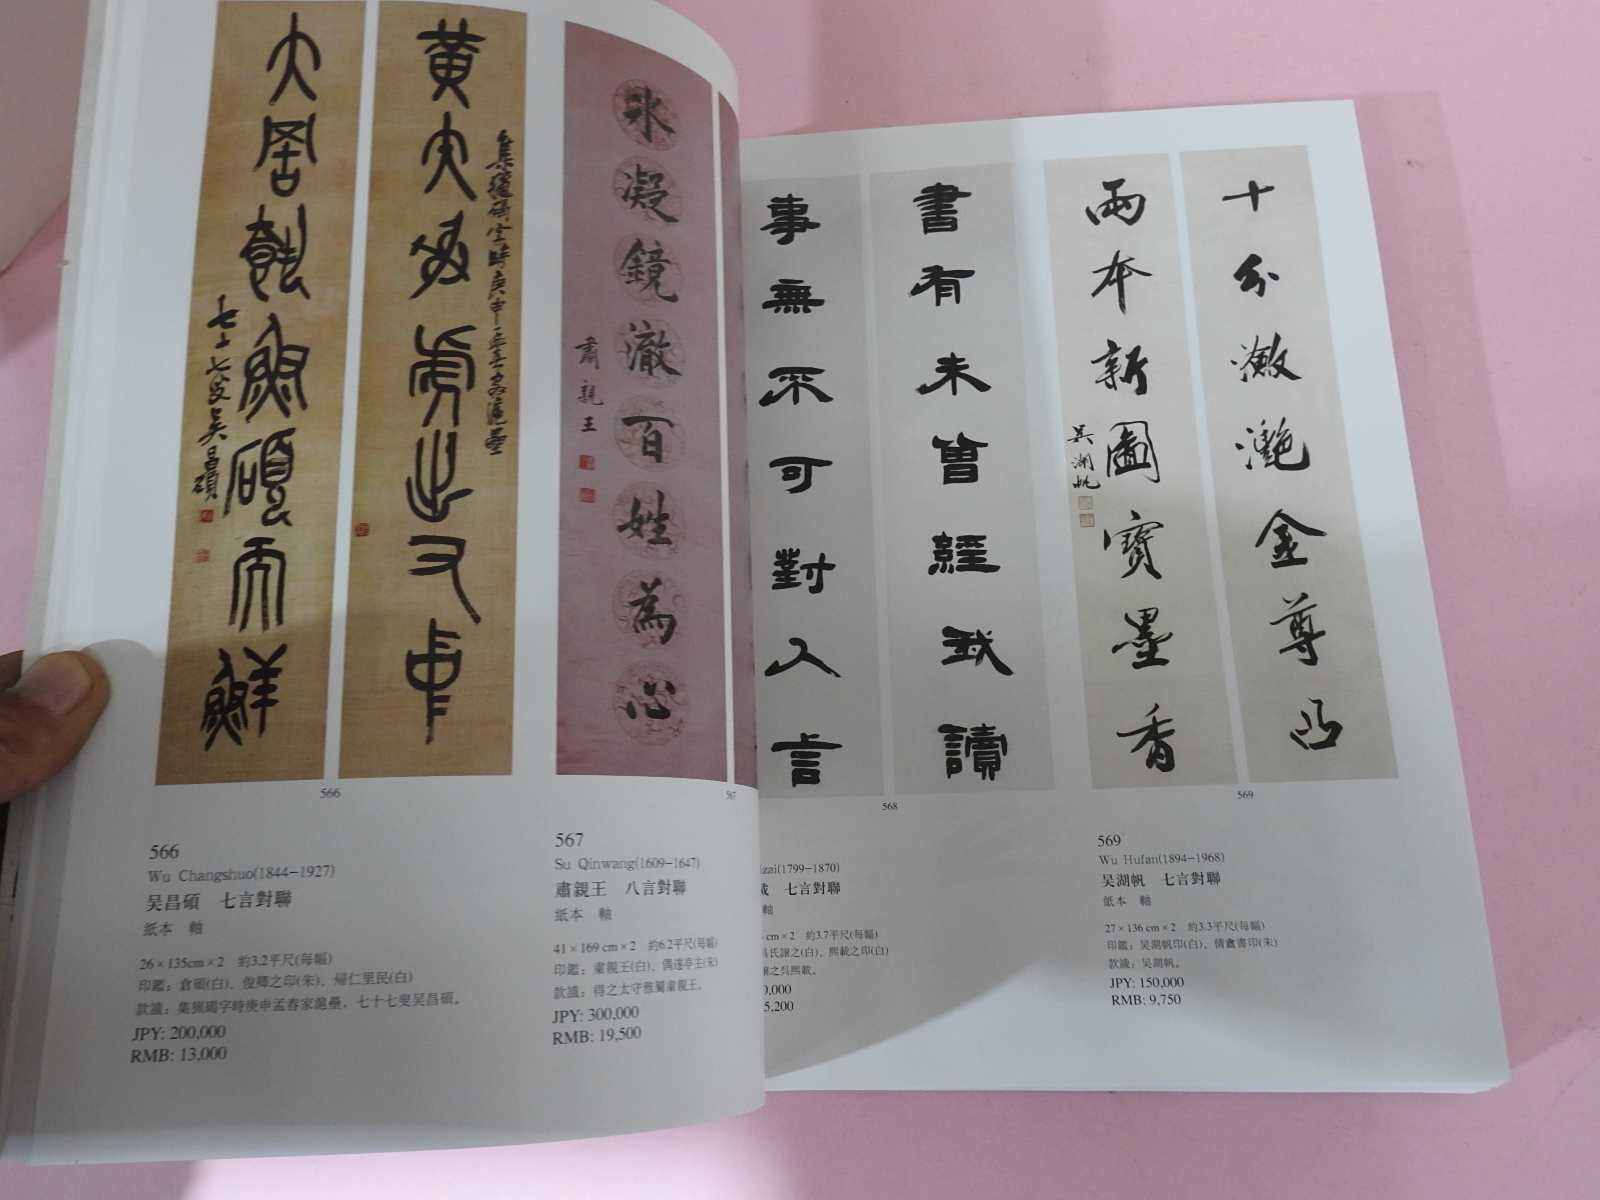 集獵碣字時庚申孟春客滬壘
七十七叟吴昌碩
566
冰凝鏡澈百姓為心
肅親王
567
書有未曾經我讀
事無不可對人言
568
十分激灧金尊凸
兩本新圖寶墨香
吴湖帆
569
566
Wu Changshuo(1844–1927)
吴昌碩 七言對聯
紙本 軸
26×135cm×2 約3.2平尺(每幅)
印鑑：倉碩(白)、俊卿之印(朱)、帰仁里民(白)
款識：集獵碣字時庚申孟春家滬壘，七十七叟吴昌碩。
JPY: 200,000
RMB: 13,000
567
Su Qinwang(1609–1647)
肅親王 八言對聯
紙本 軸
41×169 cm×2 約6.2平尺(每幅)
印鑑：肅親王(白)、偶遂亭主(朱)
款識：得之太守雅屬肅親王。
JPY: 300,000
RMB: 19,500
izai(1799–1870)
七言對聯
軸
cm×2 約3.7平尺(每幅)
吳氏讓之(白)、熙載之印(白)
讓之吳熙載。
0,000
5,200
569
Wu Hufan(1894–1968)
吴湖帆 七言對聯
紙本 軸
27×136 cm×2 約3.3平尺(每幅)
印鑑：吴湖帆印(白)、倩盦書印(朱)
款識：吴湖帆。
JPY: 150,000
RMB: 9,750